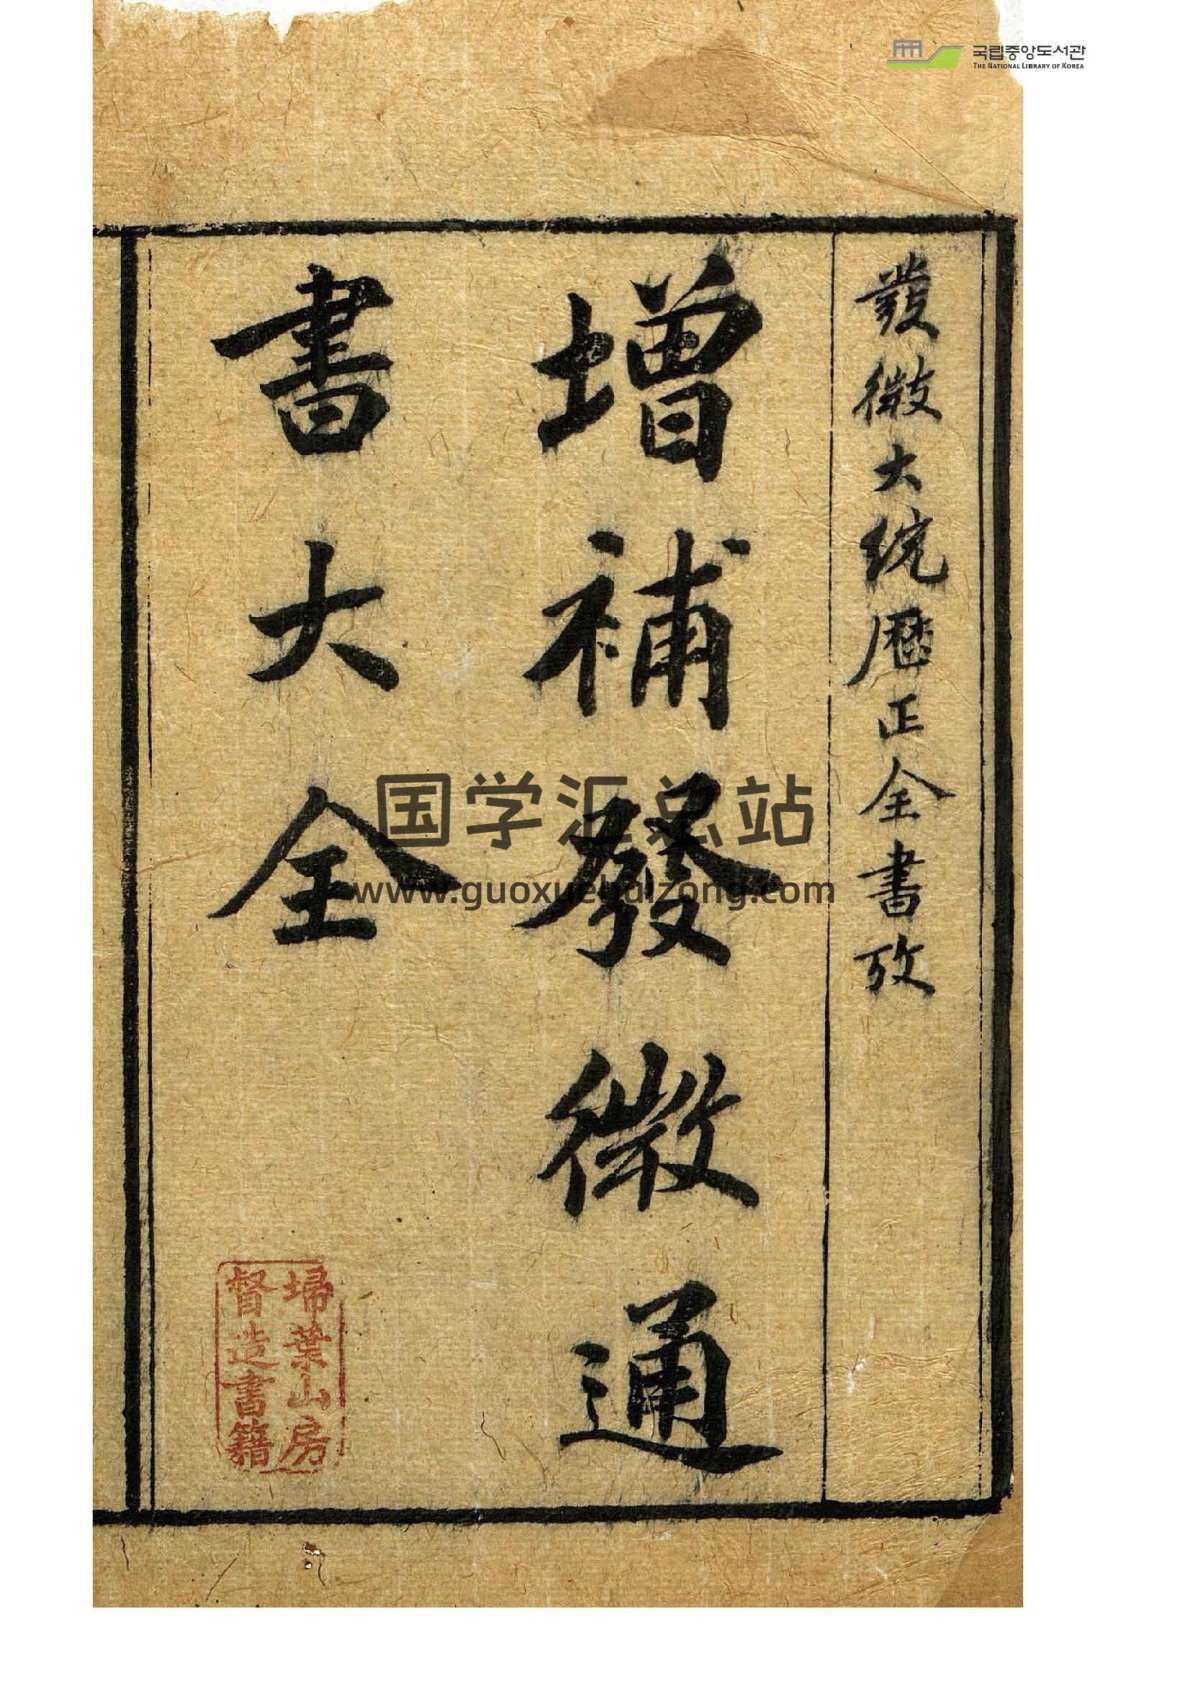 국립중앙도서관
THE NATIONAL LIBRARY OF KOREA
發微大统歷正全書攷
增補發微通
書大全
国学汇总站
www.guoxuehuizong.com
埽葉山房
督造書籍